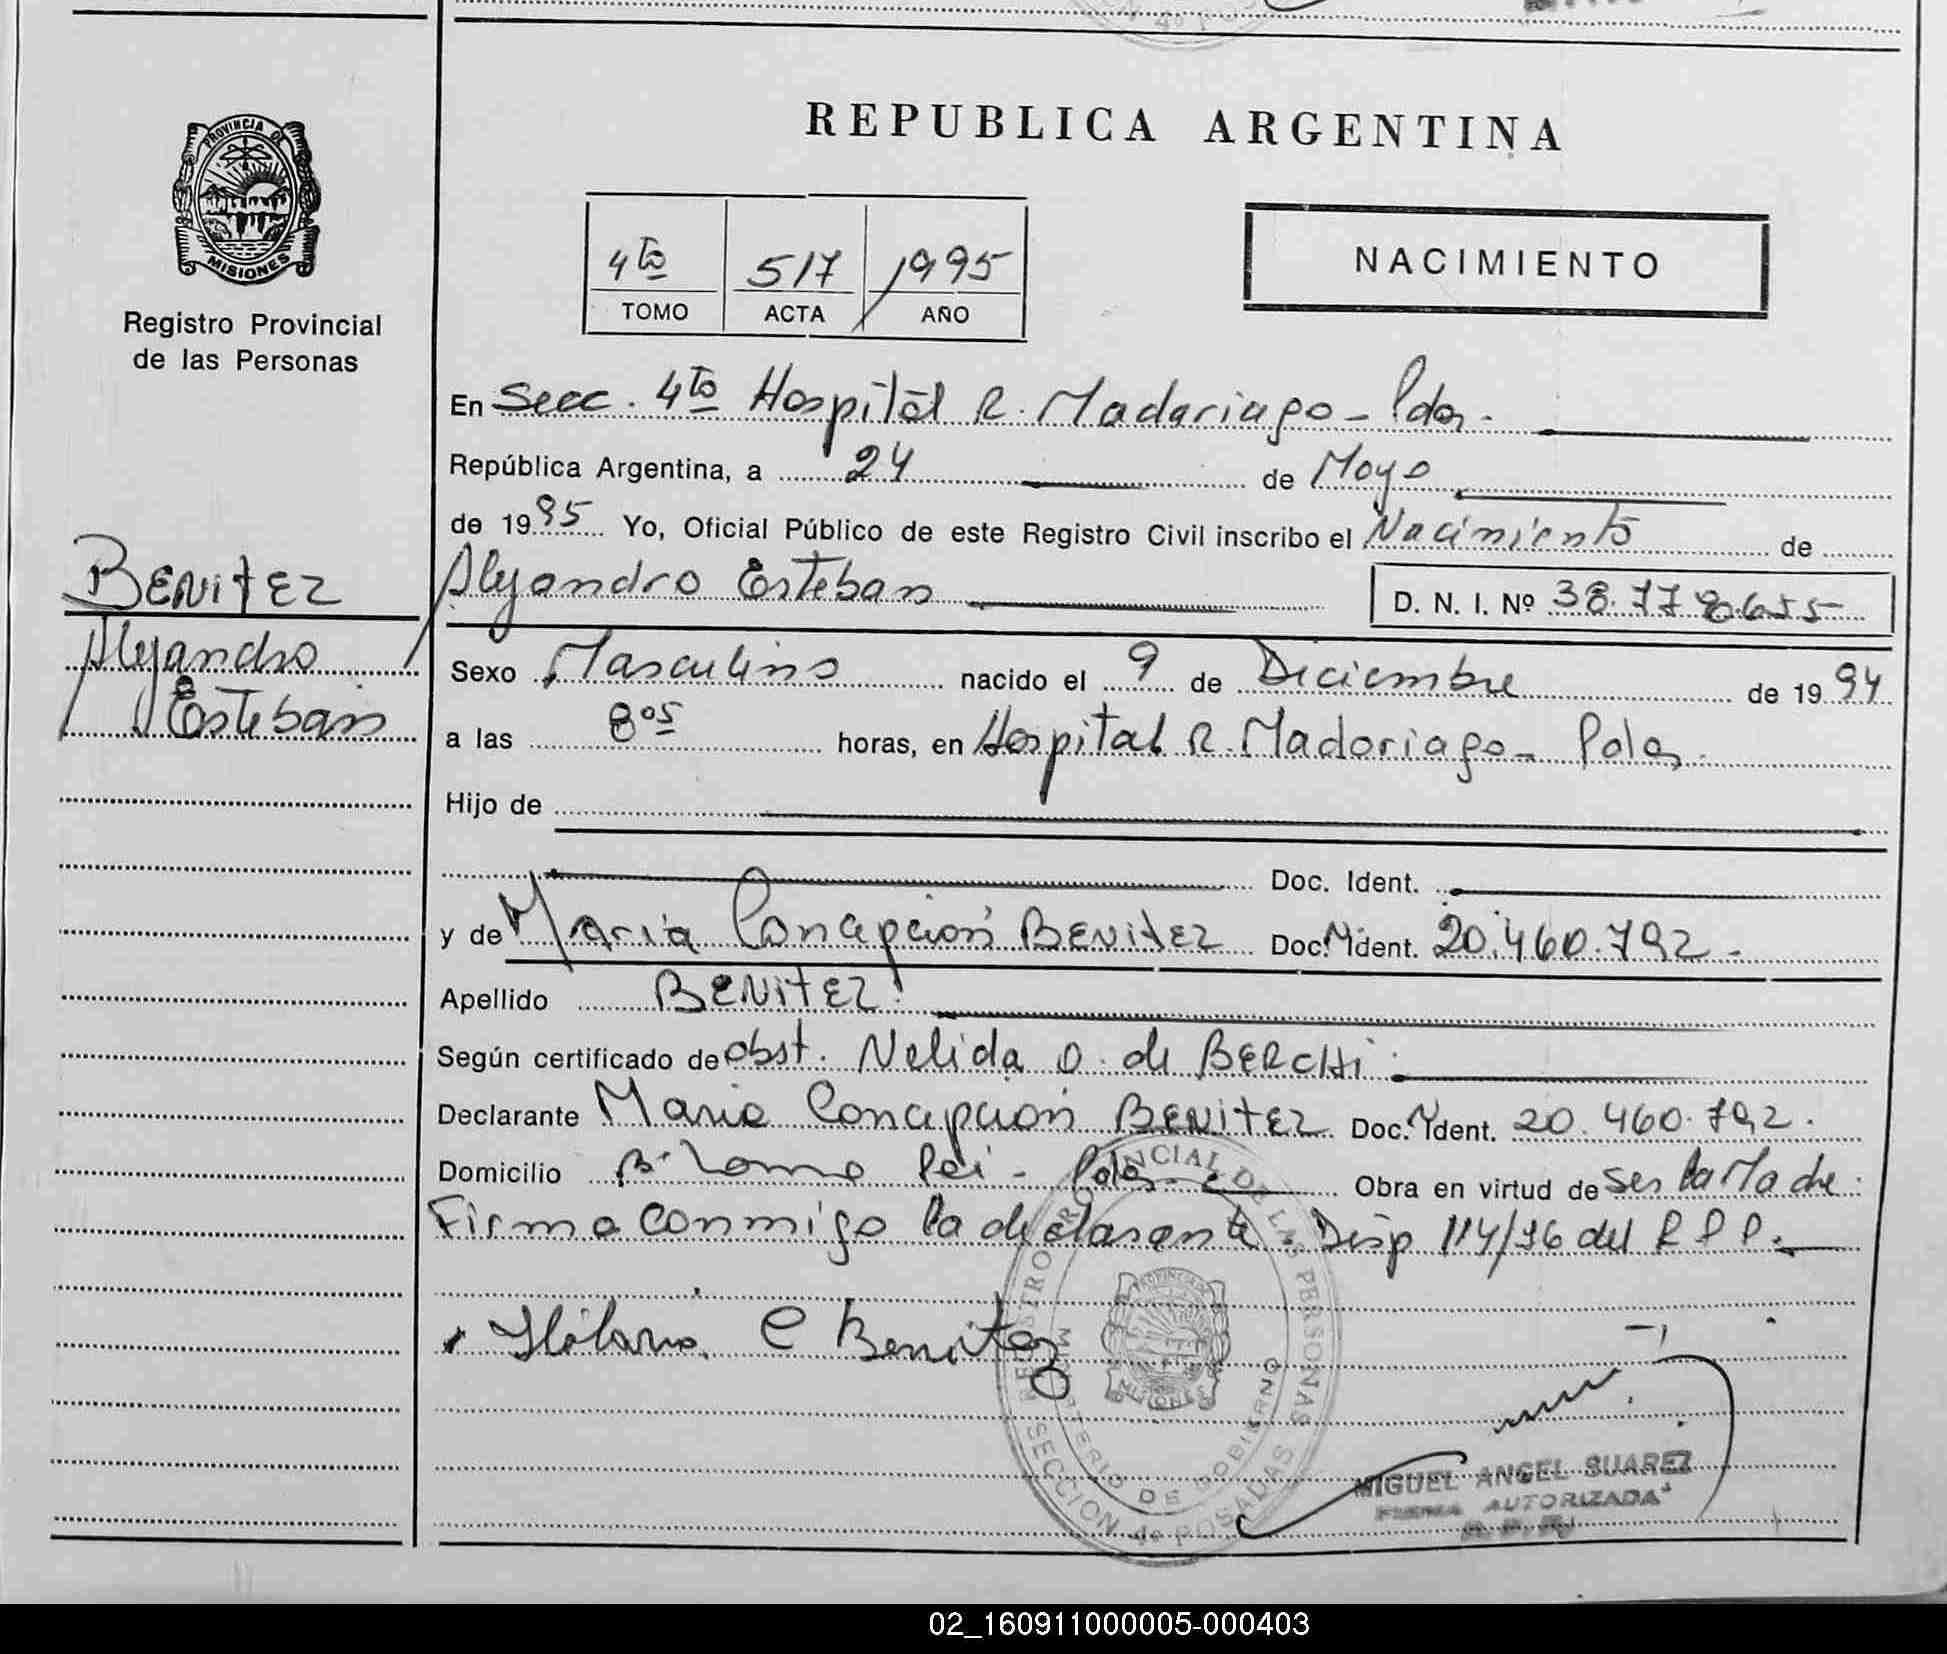 PROVINCIA DE
MISIONES
Registro Provincial
de las Personas
BENITEZ
Alejandro
Esteban
REPUBLICA ARGENTINA
4to 517 1995
TOMO ACTA AÑO
NACIMIENTO
En Secc. 4to Hospital R. Madariaga - Pdas.
República Argentina, a 24 de Mayo
de 1995 Yo, Oficial Público de este Registro Civil inscribo el Nacimiento de
Alejandro Esteban D. N. I. Nº 38.778.655
Sexo Masculino nacido el 9 de Diciembre de 1994
a las 8 05 horas, en Hospital R. Madariaga - Pdas.
Hijo de
Doc. Ident.
y de Maria Concepción BENITEZ Doc. Ident. 20.460.792.
Apellido BENITEZ.
Según certificado de obst. Nelida O. de BERCHI.
Declarante Maria Concepción BENITEZ Doc. Ident. 20.460.792.
Domicilio Bº Pdas. Obra en virtud de ser la Madre.
Firma conmigo la declarante. Disp 114/76 del R P P.
C Benitez
REGISTRO PROVINCIAL DE LAS PERSONAS
MINISTERIO DE GOBIERNO
SECCION 4º POSADAS
MIGUEL ANGEL SUAREZ
FIRMA AUTORIZADA
02_160911000005-000403